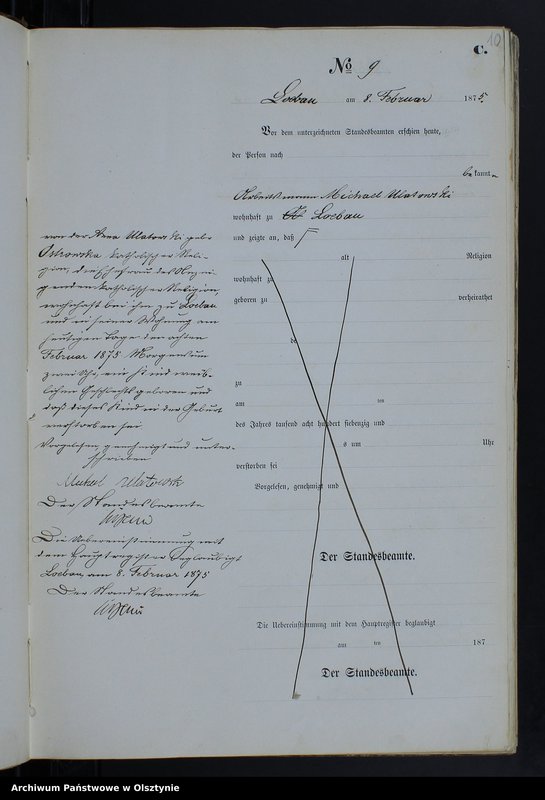 10
C.
No 9
Loebau am 8. Februar 1875.
Vor dem unterzeichneten Standesbeamten erschien heute,
der Person nach
bekannt
Arbeitsmann Michael Ulatowski
wohnhaft zu Loebau
und zeigte an, daß
von der Anna Ulatowski geb.
Ostrowska katholischer Reli-
gion, die Ehefrau des Anzei-
genden katholischer Religion,
wohnhaft bei ihm zu Loebau
und in seiner Wohnung am
heutigen Tage den achten
Februar 1875 Morgens um
zwei Uhr, ein Kind weib-
lichen Geschlechts geboren und
daß dieses Kind in der Geburt
verstorben sei
Vorgelesen, genehmigt und unter-
schrieben
Michael Ulatowsk
Der Standesbeamte
Die Uebereinstimmung mit
dem Hauptregister beglaubigt
Loebau, am 8. Februar 1875
Der Standesbeamte
alt Religion
wohnhaft zu
geboren zu verheirathet
de
zu
am ten
des Jahres tausend acht hundert siebenzig und
s um Uhr
verstorben sei
Vorgelesen, genehmigt und
Der Standesbeamte.
Die Uebereinstimmung mit dem Hauptregister beglaubigt
am ten 187
Der Standesbeamte.
Archiwum Państwowe w Olsztynie